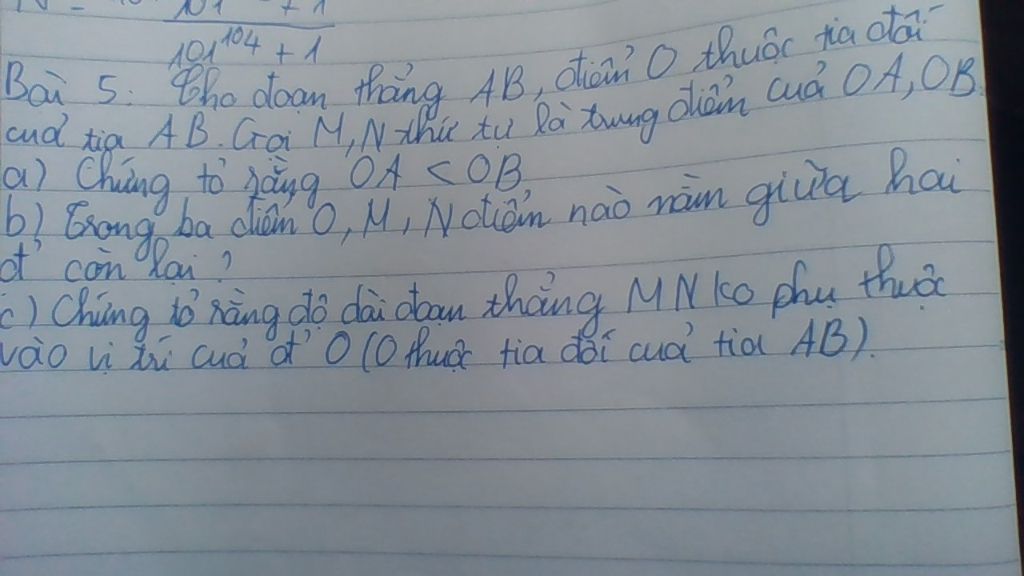 101¹⁰⁴ + 1
Bài 5: Cho đoạn thẳng AB, điểm O thuộc tia đối
của tia AB. Gọi M, N thứ tự là trung điểm của OA, OB.
a) Chứng tỏ rằng OA < OB
b) Trong ba điểm O, M, N điểm nào nằm giữa hai
đ' còn lại?
c) Chứng tỏ rằng độ dài đoạn thẳng MN ko phụ thuộc
vào vị trí của đ' O (O thuộc tia đối của tia AB).